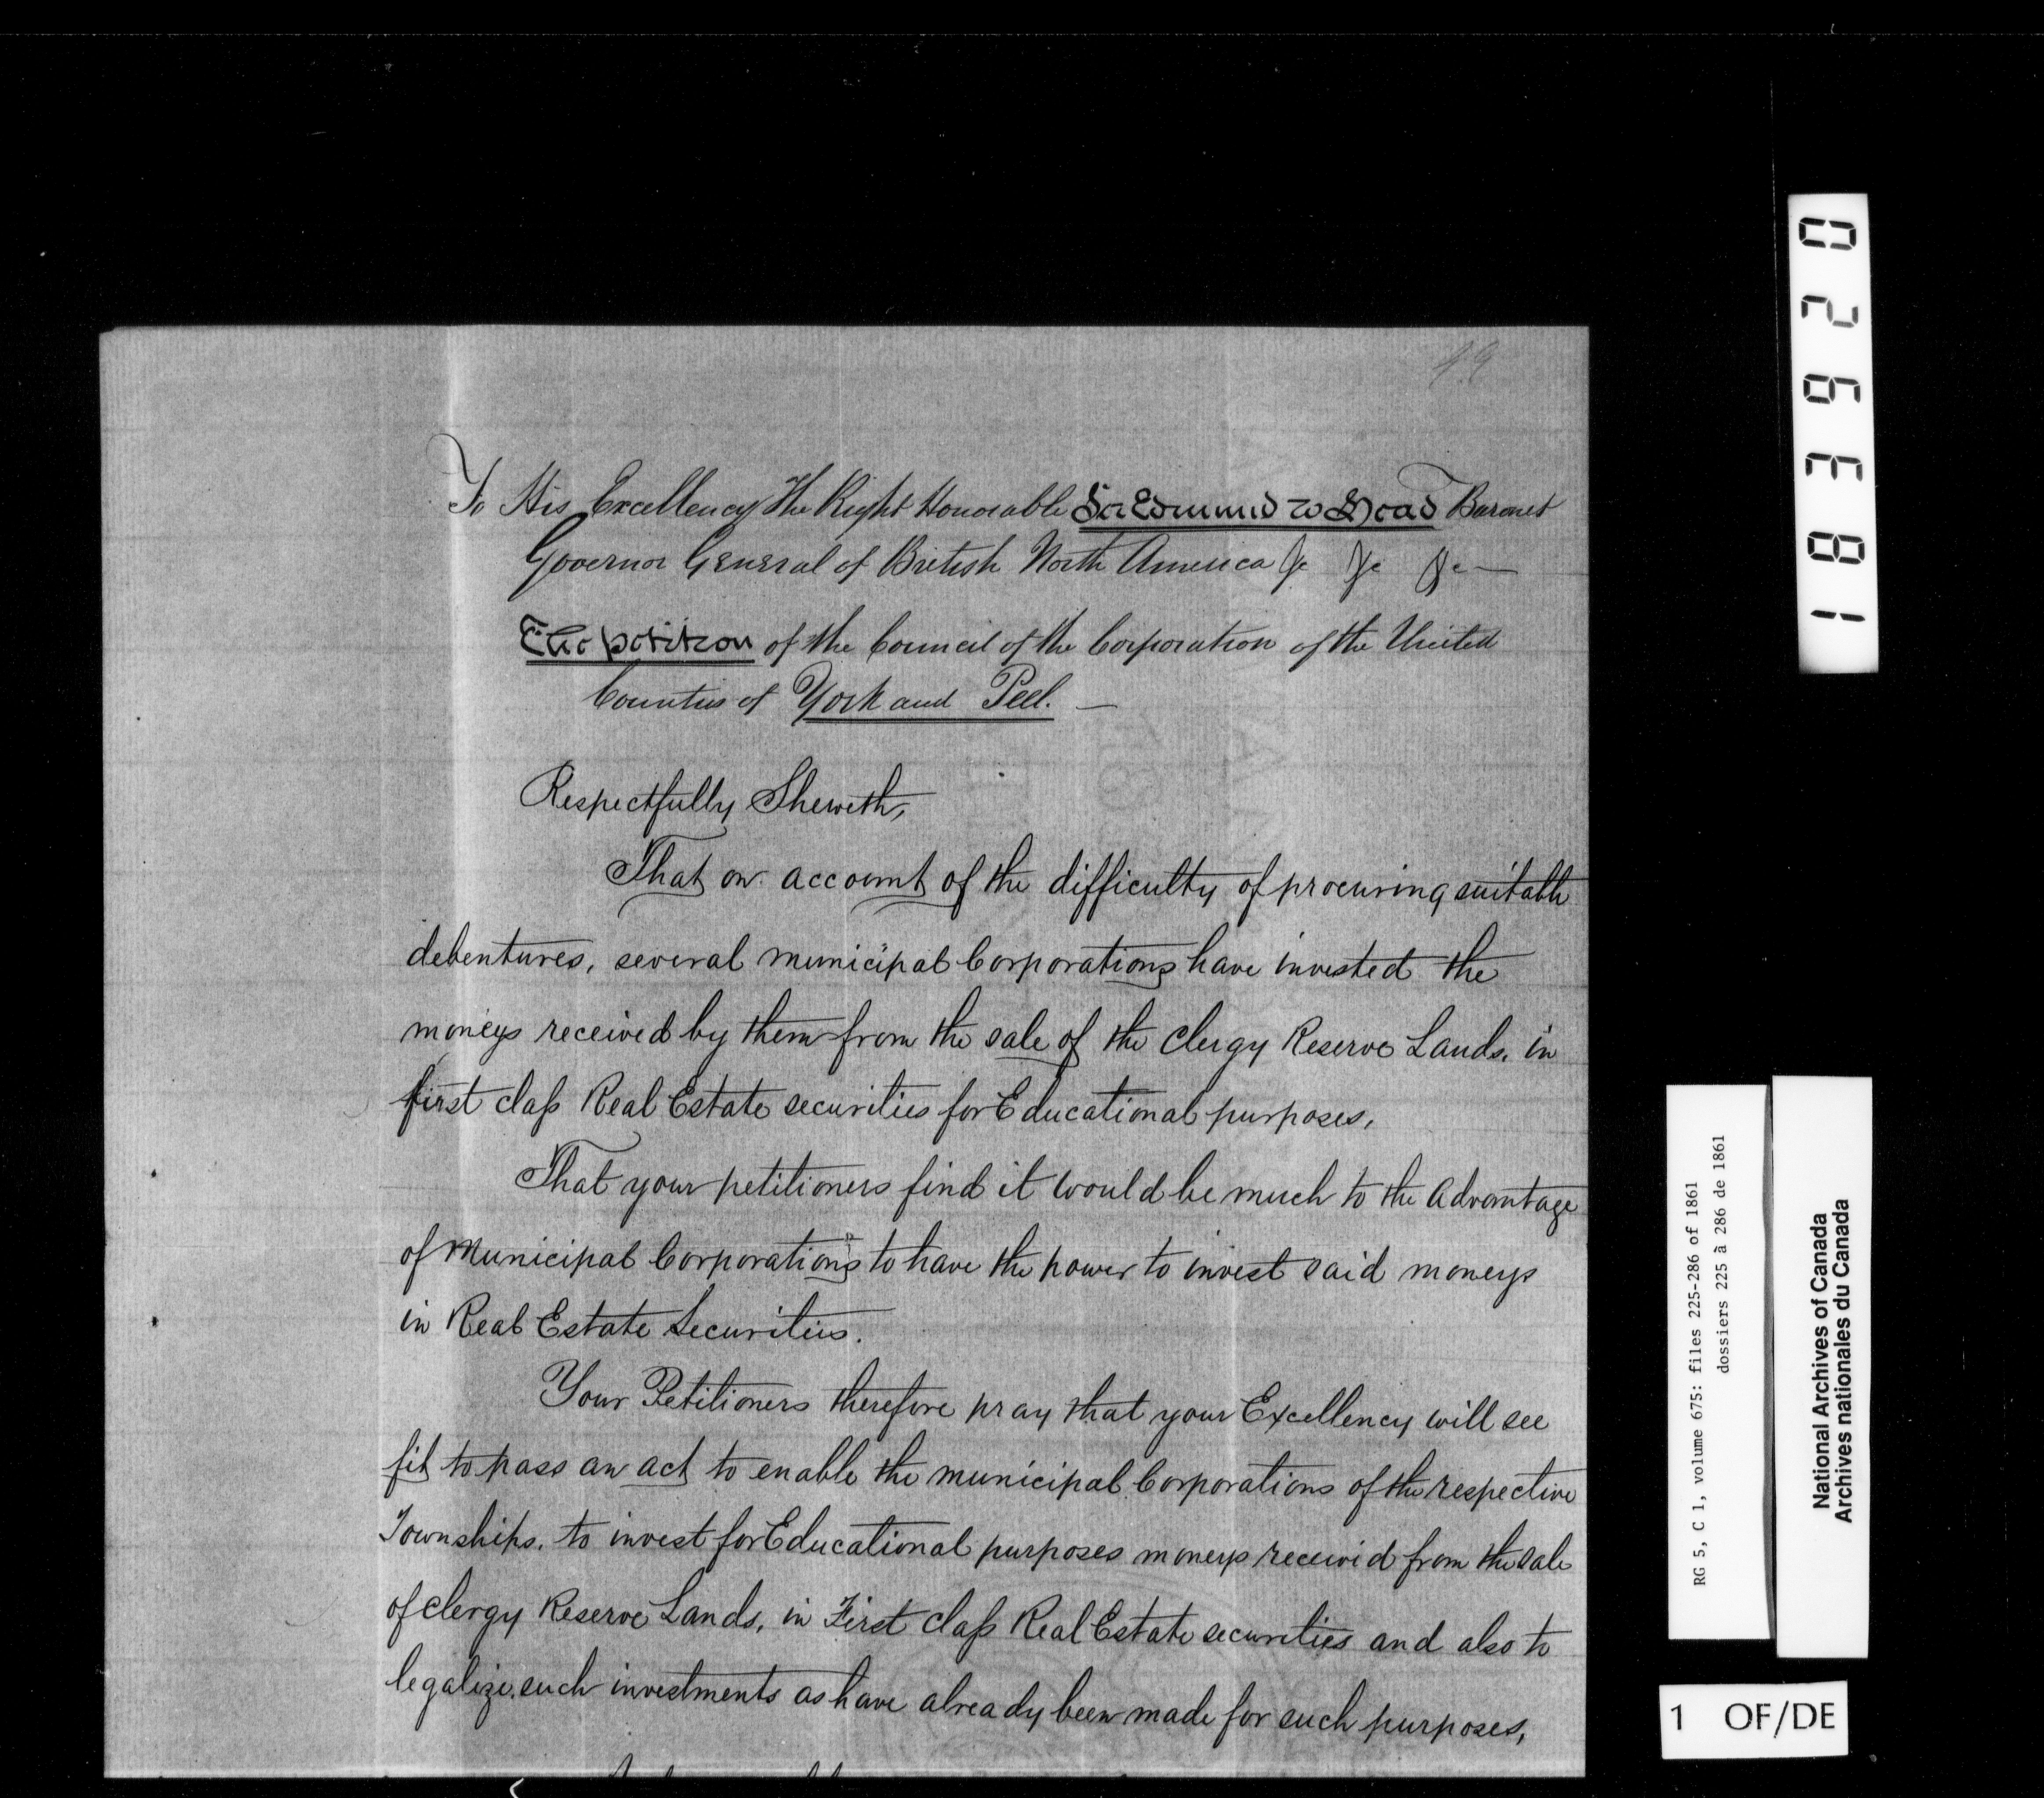 49
To His Excellency The Right Honorable Sir Edmund W Head Baronet
Governor General of British North America &c &c &c —
The petition of the Council of the Corporation of the United
Counties of York and Peel. —
Respectfully Sheweth,
That on account of the difficulty of procuring suitable
debentures, several municipal Corporations have invested the
moneys received by them from the sale of the Clergy Reserve Lands. in
first class Real Estate securities for Educational purposes,
That your petitioners find it would be much to the Advantage
of Municipal Corporations to have the power to invest said moneys
in Real Estate Securities.
Your Petitioners therefore pray that your Excellency will see
fit to pass an act to enable the municipal Corporations of the respective
Townships. to invest for Educational purposes moneys received from the sale
of Clergy Reserve Lands, in First class Real Estate securities and also to
legalize such investments as have already been made for such purposes,
026381
RG 5, C 1, volume 675: files 225-286 of 1861
dossiers 225 à 286 de 1861
National Archives of Canada
Archives nationales du Canada
1 OF/DE